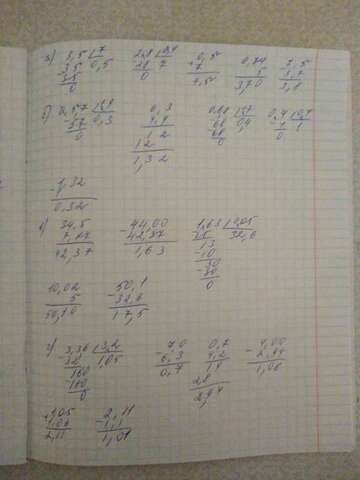 а) 3,5 | 7   2,8 | 0,4   0,5   0,74   7,5
-35 0,5   -28 7   + 7   5   -3,7
35   0   7,5   3,70   3,8
0
б) 0,57 | 1,9   0,3   0,68 | 1,7   0,4 | 0,4
-57 0,3   4,4   -68 0,4   1
0   12   0   0
12
1,32
-1,32
0,32
в) 34,5   -44,00   1,63 | 0,05
7,87   42,37   32,6
42,37   1,63   13
-10
30
-30
0
10,02   50,1
5   -32,6
50,10   17,5
г) 3,36 | 3,2   7,0   0,7   -4,00
-32 1,05   6,3   4,2   2,94
160   0,7   14   1,06
-160   28
0   2,94
+1,05   -2,11
1,06   1,1
2,11   1,01